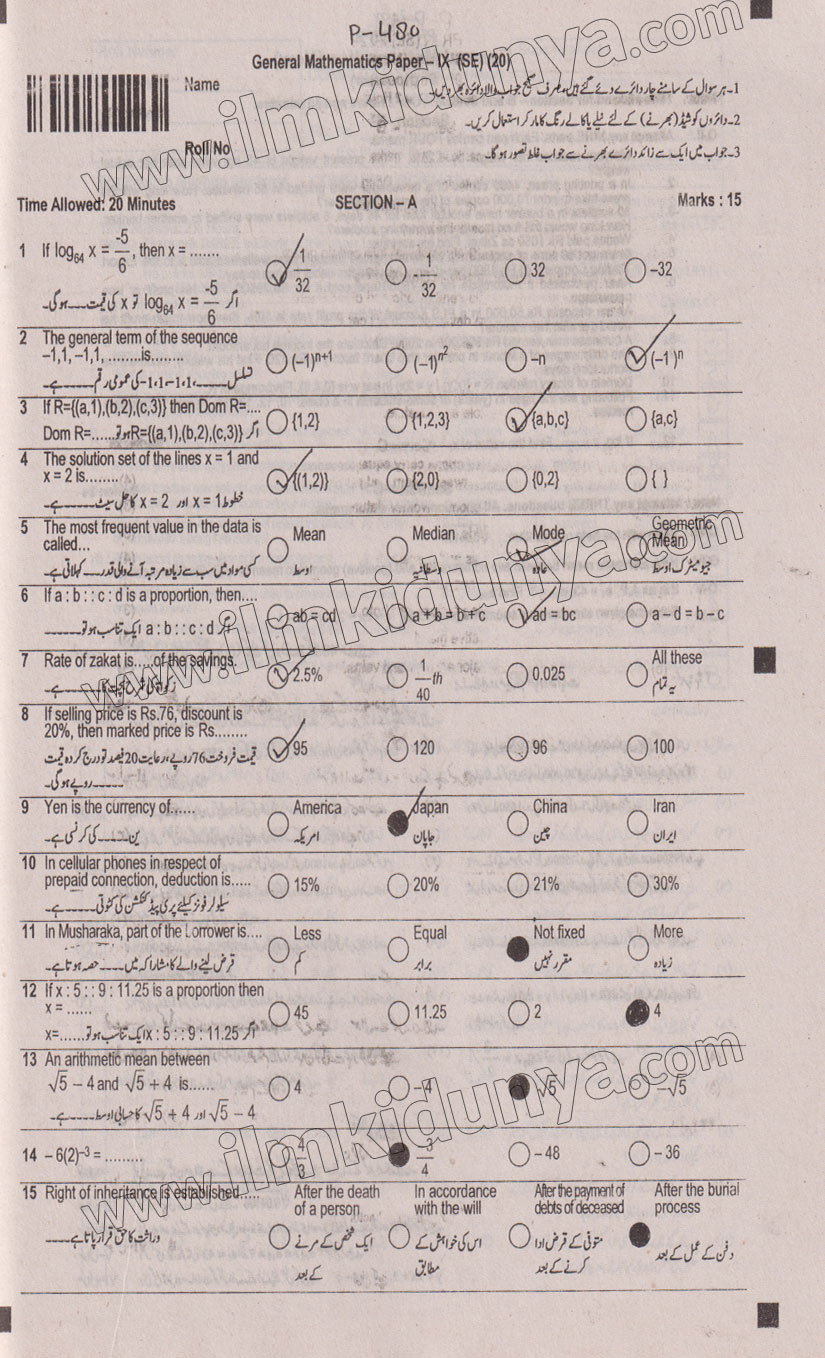 P-480
General Mathematics Paper – IX (SE) (20)
Name
1۔ ہر سوال کے سامنے چار دائرے دئے گئے ہیں، صرف صحیح جواب والا دائرہ بھر دیں۔
2۔ دائروں کو شیڈ (بھرنے) کے لئے نیلے یا کالے رنگ کا مارکر استعمال کریں۔
Roll No
3۔ جواب میں ایک سے زائد دائرے بھرنے سے جواب غلط تصور ہو گا۔
Time Allowed: 20 Minutes SECTION – A Marks : 15
1 If log64 x = -5/6, then x = ....... 1/32 -1/32 32 –32
اگر log64 x = -5/6 تو x کی قیمت ۔۔۔۔ ہو گی۔
2 The general term of the sequence
–1,1, –1,1, ........is........ (–1)^n+1 (–1)^n² –n (–1)^n
تسلسل ۔۔۔۔۔، -1،1،-1،1 کی عمومی رقم ۔۔۔۔ ہے۔
3 If R={(a,1),(b,2),(c,3)} then Dom R=.... {1,2} {1,2,3} {a,b,c} {a,c}
اگر R={(a,1),(b,2),(c,3)} ہو تو Dom R=......
4 The solution set of the lines x = 1 and
x = 2 is........ {(1,2)} {2,0} {0,2} { }
خطوط x = 1 اور x = 2 کا حل سیٹ ۔۔۔۔۔ ہے۔
5 The most frequent value in the data is
called... Mean Median Mode Geometric Mean
کسی مواد میں سب سے زیادہ مرتبہ آنے والی قدر ۔۔۔۔ کہلاتی ہے۔ اوسط وسطانیہ عادہ جیومیٹرک اوسط
6 If a : b : : c : d is a proportion, then.... ab = cd a + b = b + c ad = bc a – d = b – c
اگر a : b : : c : d ایک تناسب ہو تو ۔۔۔۔۔
7 Rate of zakat is.....of the savings. 2.5% 1/40 th 0.025 All these
یہ تمام
8 If selling price is Rs.76, discount is
20%, then marked price is Rs........ 95 120 96 100
قیمت فروخت 76 روپے، رعایت 20 فیصد تو درج کردہ قیمت
۔۔۔۔۔ روپے ہو گی۔
9 Yen is the currency of...... America Japan China Iran
ین ۔۔۔۔ کی کرنسی ہے۔ امریکہ جاپان چین ایران
10 In cellular phones in respect of
prepaid connection, deduction is..... 15% 20% 21% 30%
سیلولر فونز کیلئے پری پیڈ کنکشن کی کٹوتی ۔۔۔۔۔ ہے۔
11 In Musharaka, part of the Lorrower is.... Less Equal Not fixed More
قرض لینے والے کا مشارکہ میں ۔۔۔۔ حصہ ہوتا ہے۔ کم برابر مقرر نہیں زیادہ
12 If x : 5 : : 9 : 11.25 is a proportion then
x = ...... 45 11.25 2 4
اگر x : 5 : : 9 : 11.25 ایک تناسب ہو تو x=......
13 An arithmetic mean between
√5 – 4 and √5 + 4 is...... 4 –4 √5 –√5
√5 – 4 اور √5 + 4 کا حسابی اوسط ۔۔۔۔۔ ہے۔
14 – 6(2)^–3 = ......... 4/3 -3/4 – 48 – 36
15 Right of inheritance is established..... After the death of a person In accordance with the will After the payment of debts of deceased After the burial process
وراثت کا حق قرار پاتا ہے۔۔۔۔ ایک شخص کے مرنے کے بعد اس کی خواہش کے مطابق متوفی کے قرض ادا کرنے کے بعد دفن کے عمل کے بعد
www.ilmkidunya.com
www.ilmkidunya.com
www.ilmkidunya.com
www.ilmkidunya.com